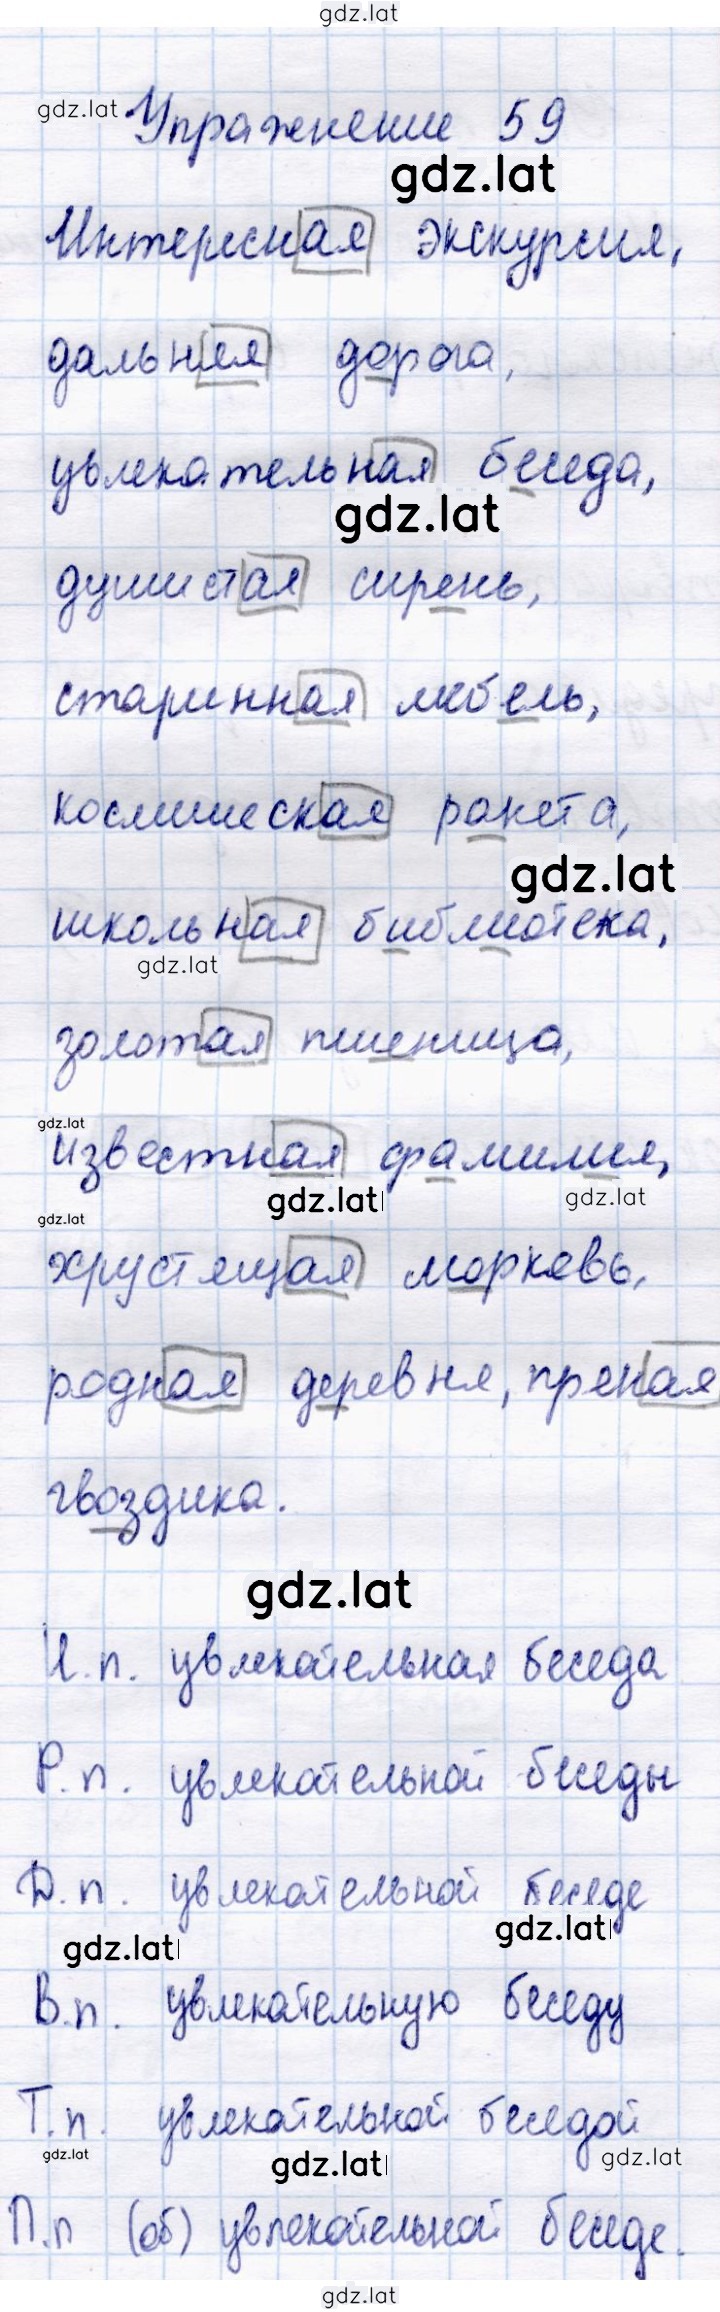 gdz.lat
gdz.lat
Упражнение 59
gdz.lat
Интересная экскурсия,
дальняя дорога,
увлекательная беседа,
gdz.lat
душистая сирень,
старинная мебель,
космическая ракета,
gdz.lat
школьная библиотека,
gdz.lat
золотая пшеница,
gdz.lat
известная фамилия,
gdz.lat gdz.lat
gdz.lat
хрустящая морковь,
родная деревня, пряная
гвоздика.
gdz.lat
И.п. увлекательная беседа
Р.п. увлекательной беседы
Д.п. увлекательной беседе
gdz.lat gdz.lat
В.п. увлекательную беседу
Т.п. увлекательной беседой
gdz.lat gdz.lat gdz.lat
П.п (об) увлекательной беседе.
gdz.lat